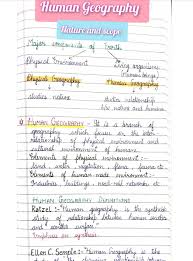 Human Geography
Nature and scope
Major components of Earth
Physical Environment
Living organisms
(Human beings)
Physical Geography
Human Geography
studies nature
studies relationship
b/w nature and humans
HUMAN GEOGRAPHY - It is a branch of
geography which focuses on the inter-
relationship of physical environment and
cultural environment of humans.
Elements of physical environment :-
land, soil, vegetation, flora, fauna etc
Elements of human made environment :-
Industries, buildings, road-rail networks etc
HUMAN GEOGRAPHY DEFINITIONS
Ratzel :- "Human geography is the synthetic
study of relationship between human societies
and earth's surface".
Emphasis on synthesis
Ellen C. Semple :- "Human Geography is the